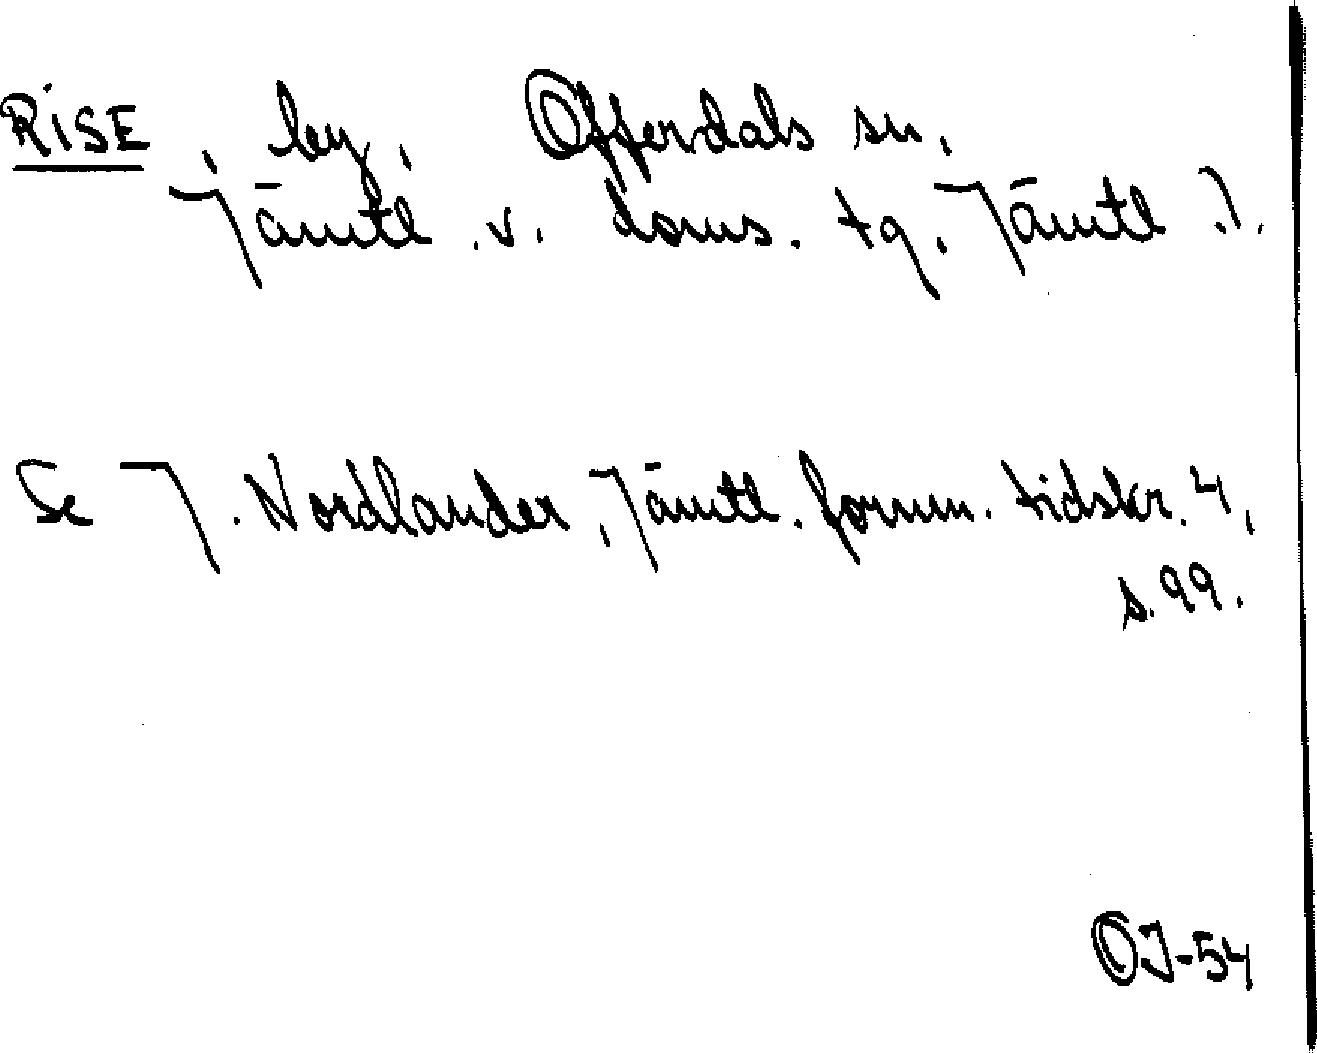 RISE, by, Offerdals sn,
Jämtl. v. doms. tg. Jämtl. l.
Se J. Nordlander, Jämtl. fornm. tidskr. 4,
s. 99.
OJ-54